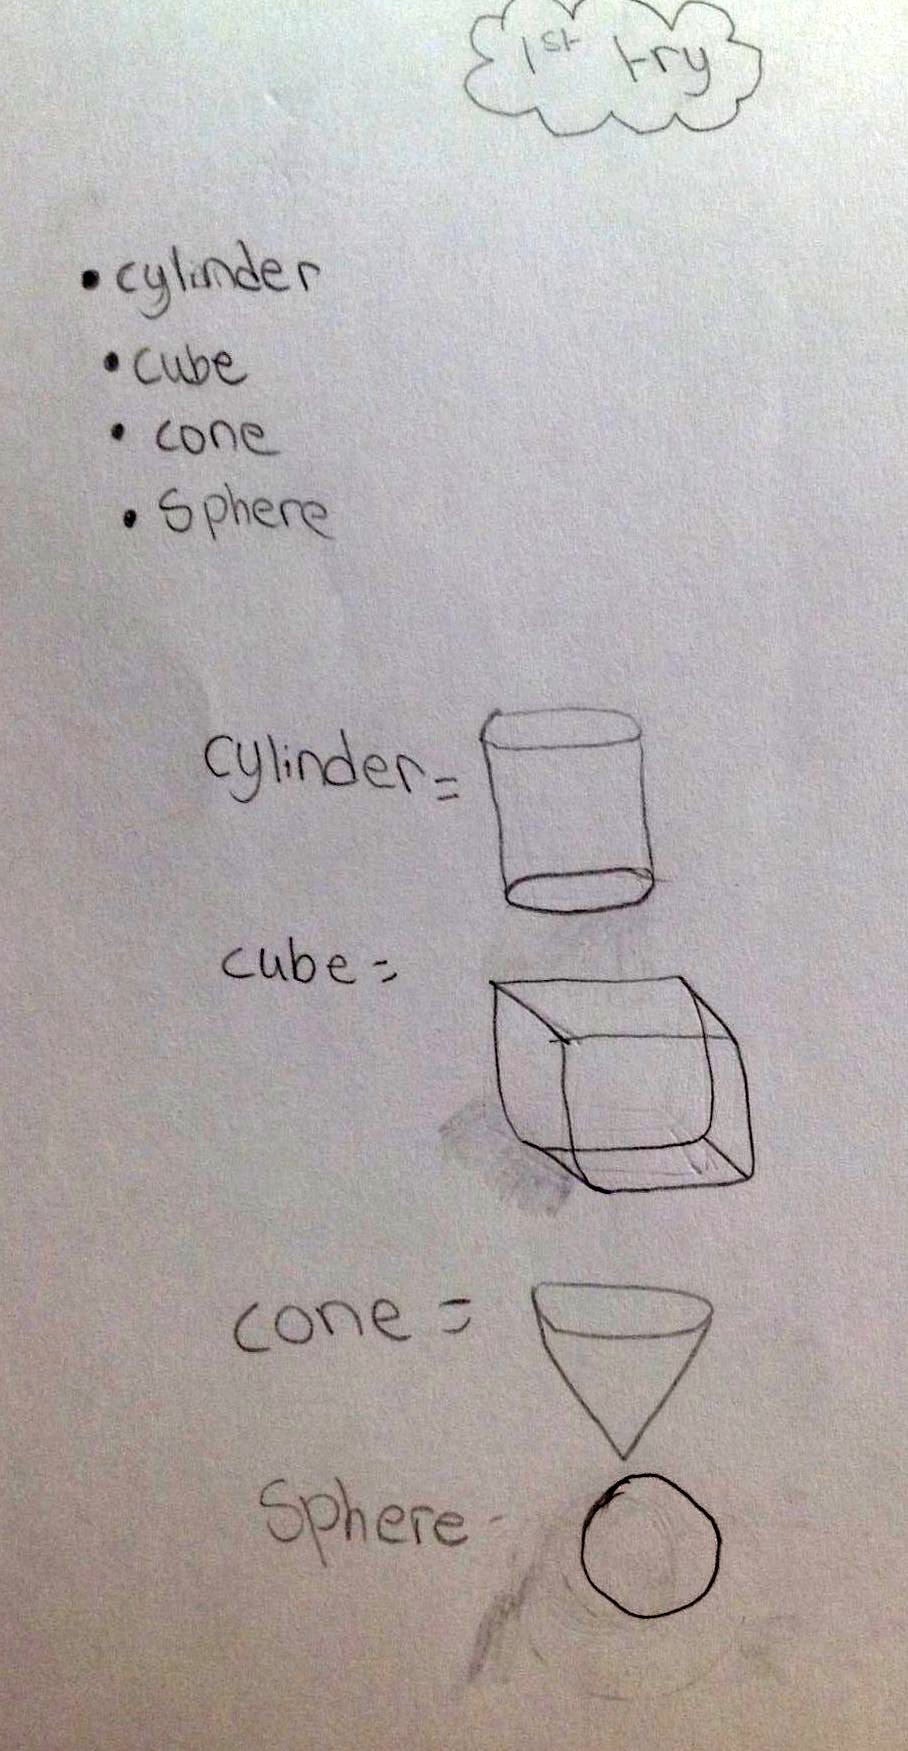 1st try
• cylinder
• cube
• cone
• Sphere
Cylinder =
cube =
cone =
Sphere -